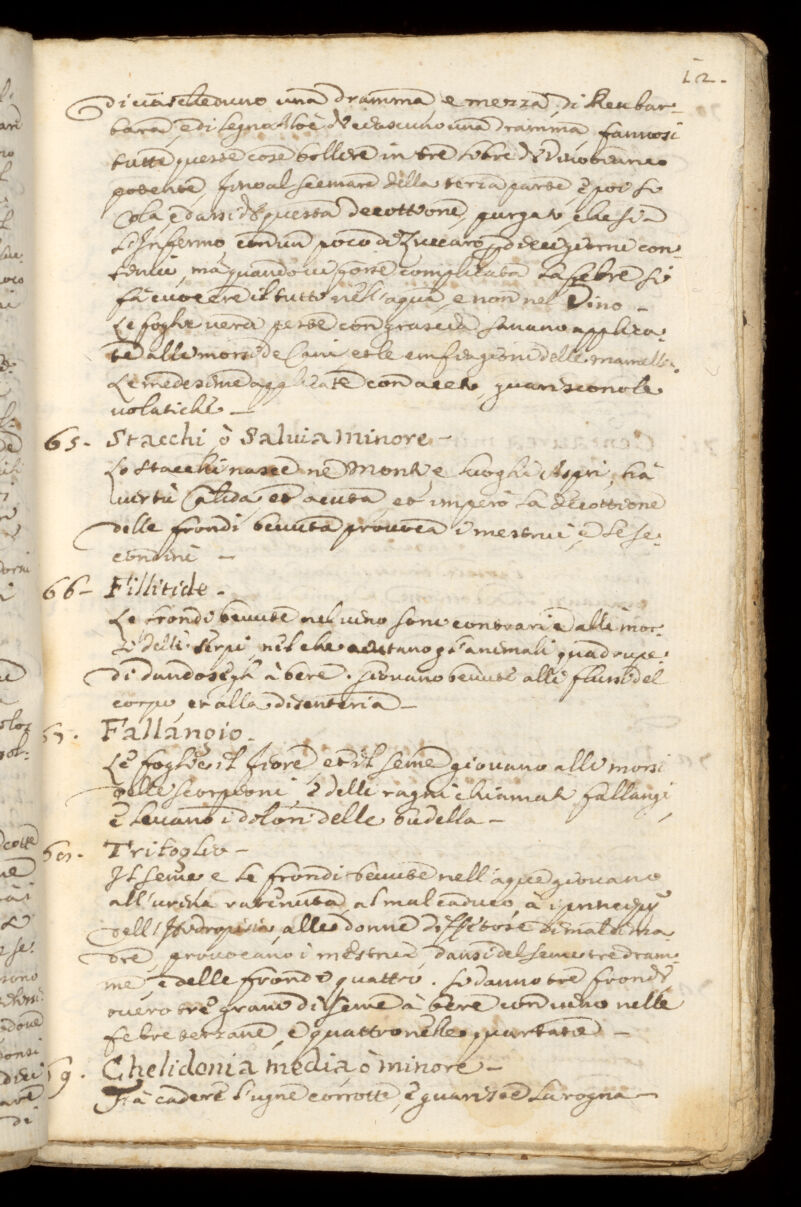 12.
di ciascheduno una dramma e mezza, di Reubar-
bara, e di legno Aloè di ciascuno una dramma, fannosi
tutte queste cose bollire in tre libre di vino bianco
potente, fino al scemare della terza parte, è poi si
cola, è dassi di questa decottione, purgato, che sia
l'Infermo con un poco di Zuccaro, p dieci giorni con-
tinui, mà quando vi fosse complicata la febre si
fà cuocere il tutto nell'aqua, e non nel Vino -
Le foglie verdi peste con grascia sanano applica-
te alli morsi de Cani et le enfiagioni delle mamelle.
Le medesime applicate con aceto, guariscono le
volatiche -
65. Stacchi ò Salvia minore -
Lo Stacchi nasce nè Monti, e luoghi Aspri, hà
virtù Calida, et acuta, et imperò la decottione
delle frondi bevuta provoca i mestrui, è le se-
condine -
66- Fillitide -
Le frondi bevute nel vino sono contrarie alli mor-
si delli serpi, nel che aiutano gl'animali quadrupe-
di dandosegli à bere. Giovano bevute alli flussi del
corpo et alla disenteria -
67. Fallangio -
Le foglie, il fiore, et il seme giovano alli morsi
delli scorpioni, è delli ragni chiamati fallangi,
è levano i dolori delle budella -
68. Trifoglio -
Il seme e le frondi bevute nell'aqua giovano
all'urina ratenuta, al mal caduco, à i principij
dell'Hidropisia, alle donne diffitose di mal di ma-
dre, provocano i mestrui, dansi del seme tre dram-
me, è delle frondi quattro. Si danno tre frondi
overo tre grane di seme à bere con vino nelle
febre terzane, è quattro nelle quartane -
69. Chelidonia media, ò minore -
Fà cadere l'ugne corrotte, è guarisce la rogna -